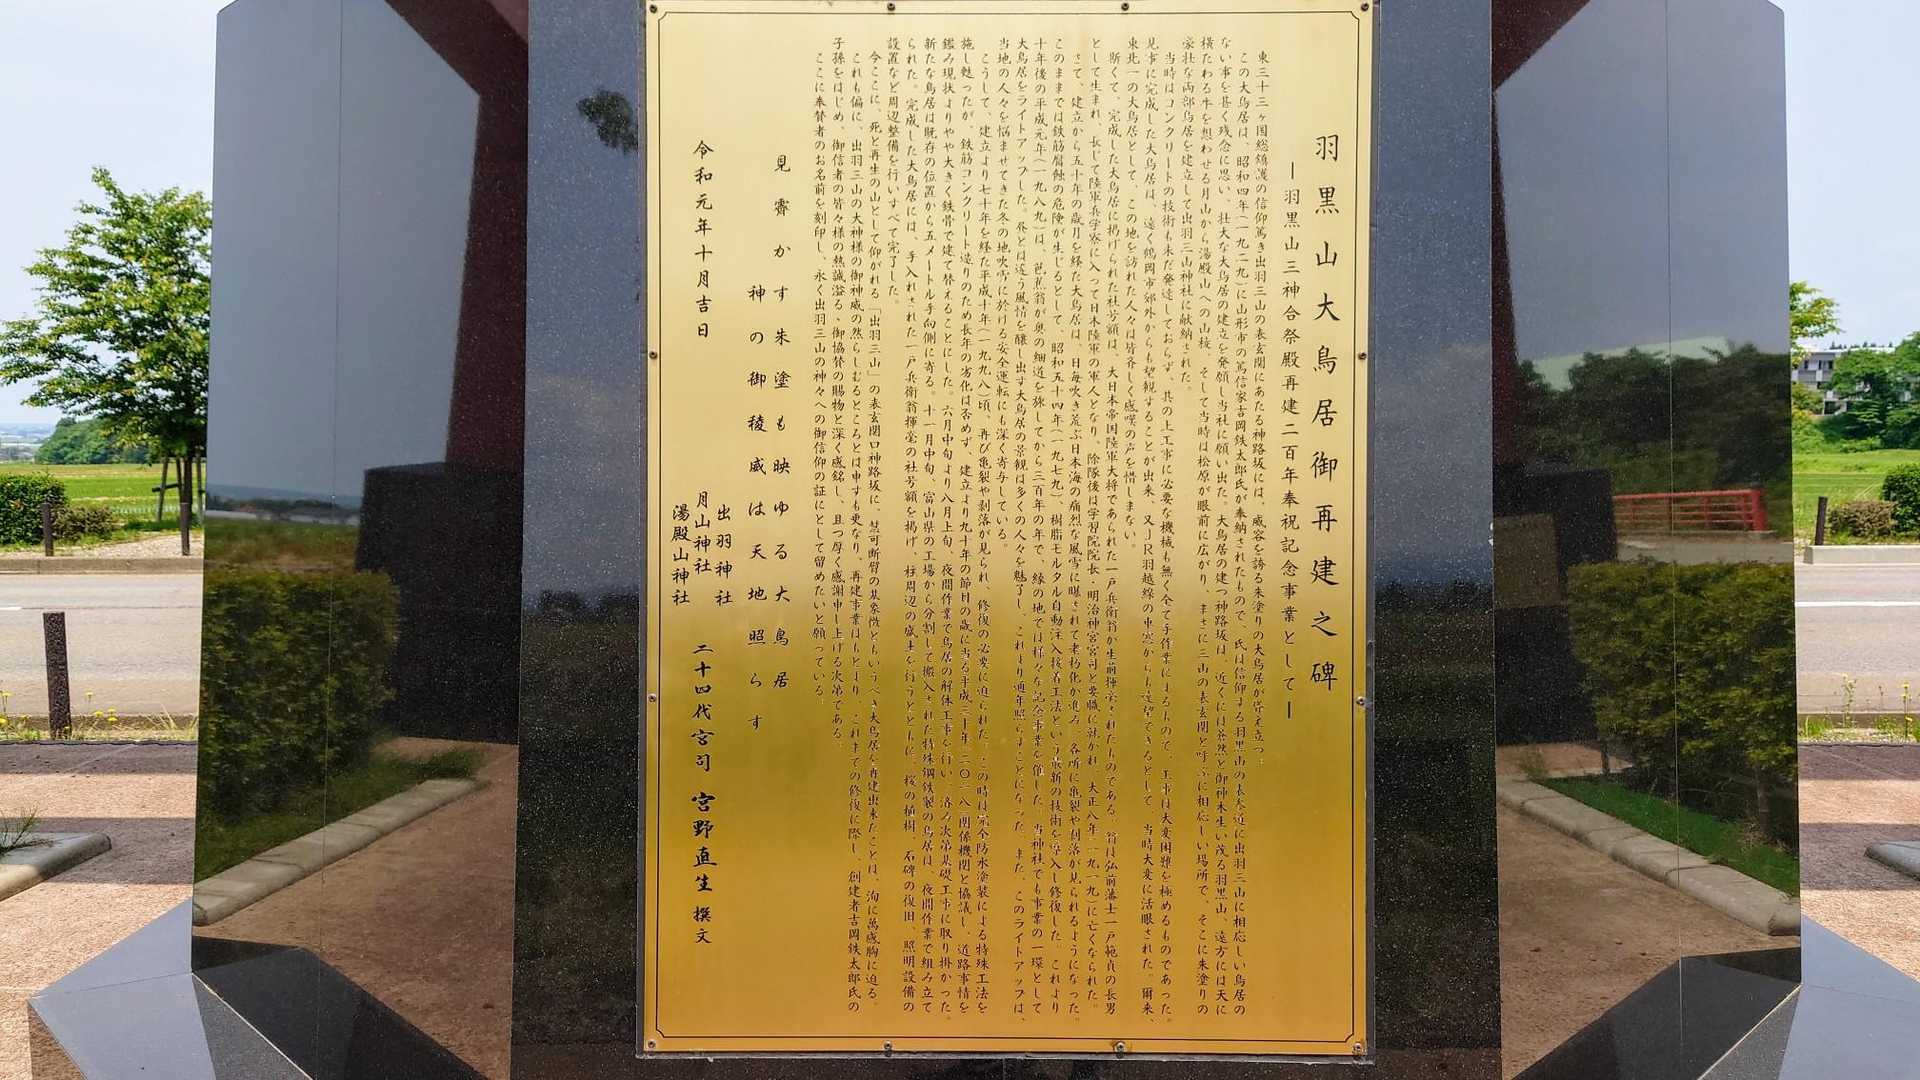 羽黒山大鳥居御再建之碑
―羽黒山三神合祭殿再建二百年奉祝記念事業として―
東三十三ヶ国総鎮護の信仰篤き出羽三山の表玄関にあたる神路坂には、威容を誇る朱塗りの大鳥居が聳え立つ。
この大鳥居は、昭和四年(一九二九)に山形市の篤信家吉岡鉄太郎氏が奉納されたもので、氏は信仰する羽黒山の表参道に出羽三山に相応しい鳥居の
ない事を甚く残念に思い、壮大な大鳥居の建立を発願し当社に願い出た。大鳥居の建つ神路坂は、近くには蒼然と御神木生い茂る羽黒山、遠方には天に
横たわる牛を想わせる月山から湯殿山への山稜、そして当時は松原が眼前に広がり、まさに三山の表玄関と呼ぶに相応しい場所で、そこに朱塗りの
豪壮な両部鳥居を建立して出羽三山神社に献納された。
当時はコンクリートの技術も未だ発達しておらず、其の上工事に必要な機械も無く全て手作業によるもので、工事は大変困難を極めるものであった。
見事に完成した大鳥居は、遠く鶴岡市郊外からも望観することが出来、又JR羽越線の車窓からも遠望できるとして、当時大変に活眼された。爾来、
東北一の大鳥居として、この地を訪れた人々は皆斉しく感嘆の声を惜しまない。
斯くて、完成した大鳥居に掲げられた社号額は、大日本帝国陸軍大将であられた一戸兵衛翁が生前揮毫されたものである。翁は弘前藩士一戸範貞の長男
として生まれ、長じて陸軍兵学寮に入って日本陸軍の軍人となり、除隊後は学習院院長・明治神宮宮司と要職に就かれ、大正八年(一九一九)に亡くなられた。
さて、建立から五十年の歳月を経た大鳥居は、日毎吹き荒ぶ日本海の痛烈な風雪に曝されて老朽化が進み、各所に亀裂や剥落が見られるようになった。
このままでは鉄筋腐蝕の危険が生じるとして、昭和五十四年(一九七九)、樹脂モルタル自動注入接着工法という最新の技術を導入し修復した。これより
十年後の平成元年(一九八九)は、芭蕉翁が奥の細道を旅してから三百年の年で、縁の地では様々な記念事業を催した。当神社でも事業の一環として
大鳥居をライトアップした。昼とは違う風情を醸し出す大鳥居の景観は多くの人々を魅了し、これより通年照らすことになった。また、このライトアップは、
当地の人々を悩ませてきた冬の地吹雪に於ける安全運転にも深く寄与している。
こうして、建立より七十年を経た平成十年(一九九八)頃、再び亀裂や剥落が見られ、修復の必要に迫られた。この時は完全防水塗装による特殊工法を
施し甦ったが、鉄筋コンクリート造りのため長年の劣化は否めず、建立より九十年の節目の歳に当る平成三十年(二〇一八)関係機関と協議し、道路事情を
鑑み現状よりやや大きく鉄骨で建て替えることにした。六月中旬より八月上旬、夜間作業で鳥居の解体工事を行い、済み次第基礎工事に取り掛かった。
新たな鳥居は既存の位置から五メートル手向側に寄る。十一月中旬、富山県の工場から分割して搬入された特殊鋼鉄製の鳥居は、夜間作業で組み立て
られた。完成した大鳥居には、手入れされた一戸兵衛翁揮毫の社号額を掲げ、柱周辺の盛土を行うとともに、桜の植樹、石碑の復旧、照明設備の
設置など周辺整備を行いすべて完了した。
今ここに、死と再生の山として仰がれる「出羽三山」の表玄関口神路坂に、慧可断臂の気象慨ともいうべき大鳥居を再建出来たことは、洵に萬感胸に迫る。
これも偏に、出羽三山の大神様の御神威の然らしむるところとは申すも更なり、再建事業はもとより、これまでの修復に際し、創建者吉岡鉄太郎氏の
子孫をはじめ、御信者の皆々様の熱誠溢る、御協賛の賜物と深く感銘し、且つ厚く感謝申し上げる次第である。
ここに奉賛者のお名前を刻印し、永く出羽三山の神々への御信仰の証にとして留めたいと願っている。
見霽かす朱塗も映ゆる大鳥居
神の御稜威は天地照らす
令和元年十月吉日
出羽神社
月山神社
湯殿山神社
二十四代宮司 宮野直生 撰文